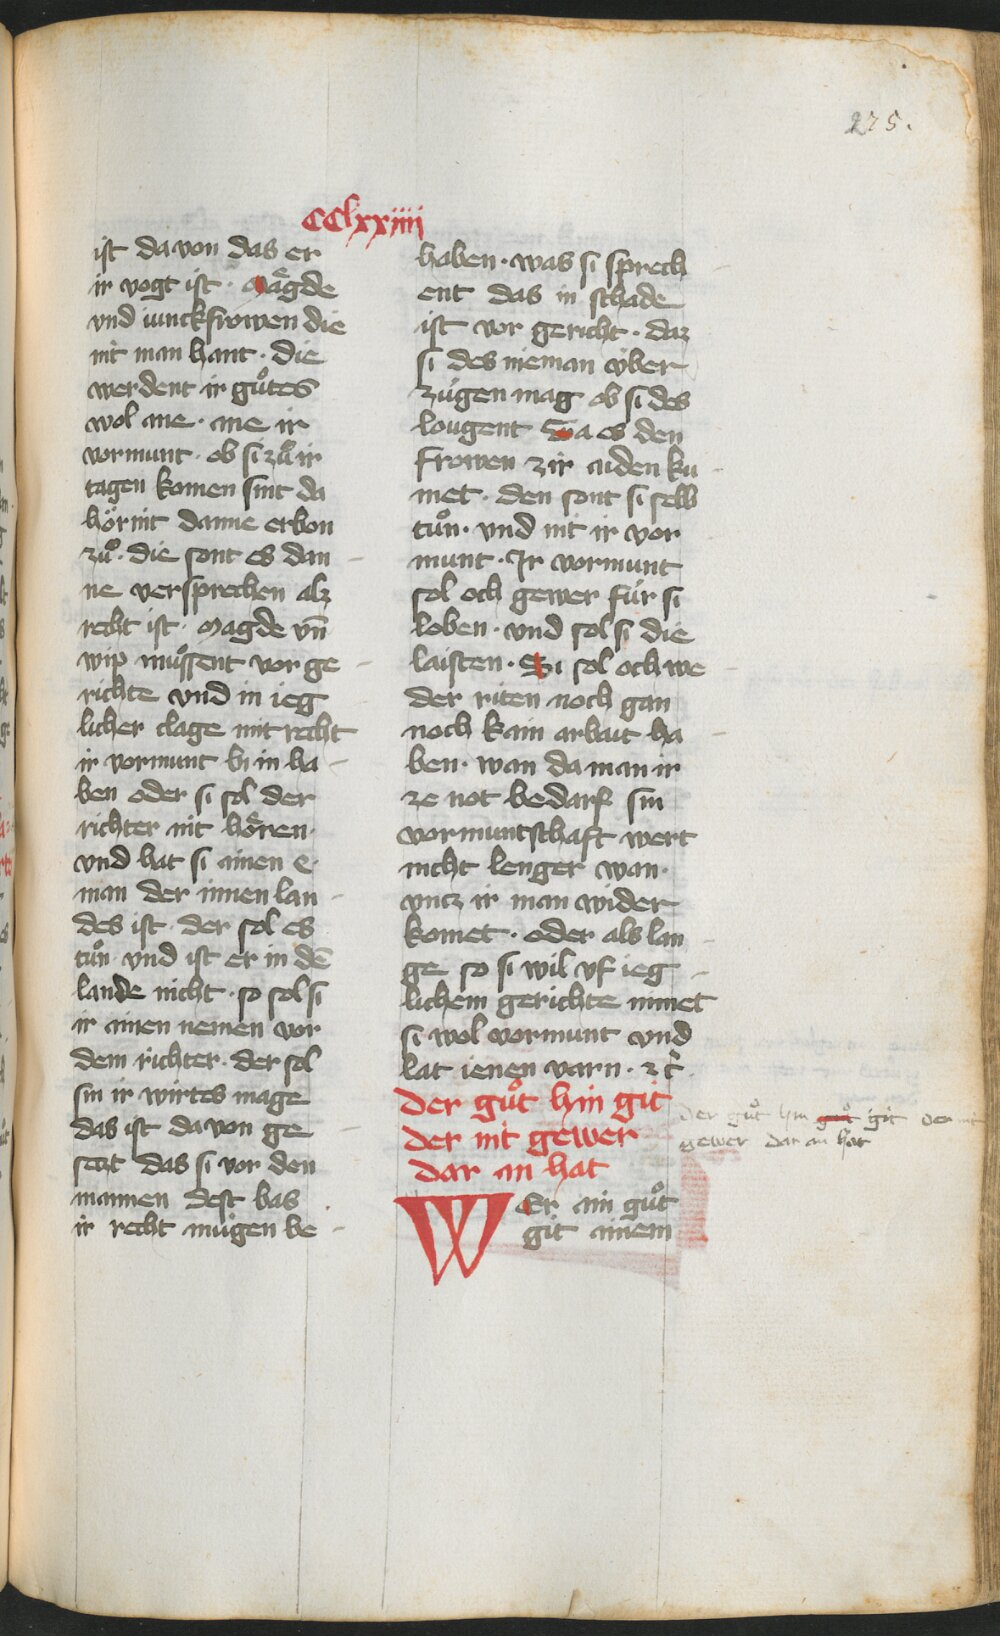 275.
CClxxiiii
ist da von das er
ir vogt ist · Mägde
vnd iunckfrowen die
nit man hant · die
werdent ir guͦtes
wol ane · ane ir
vormunt · ob si zuͦ ir
tagen komen sint da
hörnt danne erbon
zuͦ · die sont es dan
ne versprechen alz
recht ist · Magde vn̄
wip muͤssent vor ge
richte vnd in ieg
licher clage mit recht
ir vormunt bi in ha
ben oder si sol der
richter nit hören ·
vnd hat si ainen e
man der innen lan
des ist · der sol es
tuͦn · vnd ist er in dē
lande nicht · so sol si
ir ainen nemen vor
dem richter · der sol
sin ir wirtes mage
das ist da von ge
setzt das si vor den
mannen dest bas
ir recht mügen be
haben · was si sprech
ent das in schade
ist vor gericht · daz
si des nieman v́ber
zúgen mag ob si des
lougent Swa es den
frowen zir aiden ku
met · den sont si selb
tuͦn · vnd nit ir vor
munt · Ir vormunt
sol och gewer fúr si
loben · vnd sol si die
laisten · Si sol och we
der riten noch gan
noch kain arbait ha
ben · wan da man ir
ze not bedarf sin
vormuntschaft wert
nicht lenger wan ·
vncz ir man wider
komet · oder als lan
ge so si wil vf ieg
lichem gerichte nimet
si wol vormunt vnd
lat ienen varn · ꝛc̄ ·
Der guͦt hin git
der nit gewer
dar an hat
WEr ain guͦt
git ainem
der guͦt hin guͦt git der nit
gewer dar an hat